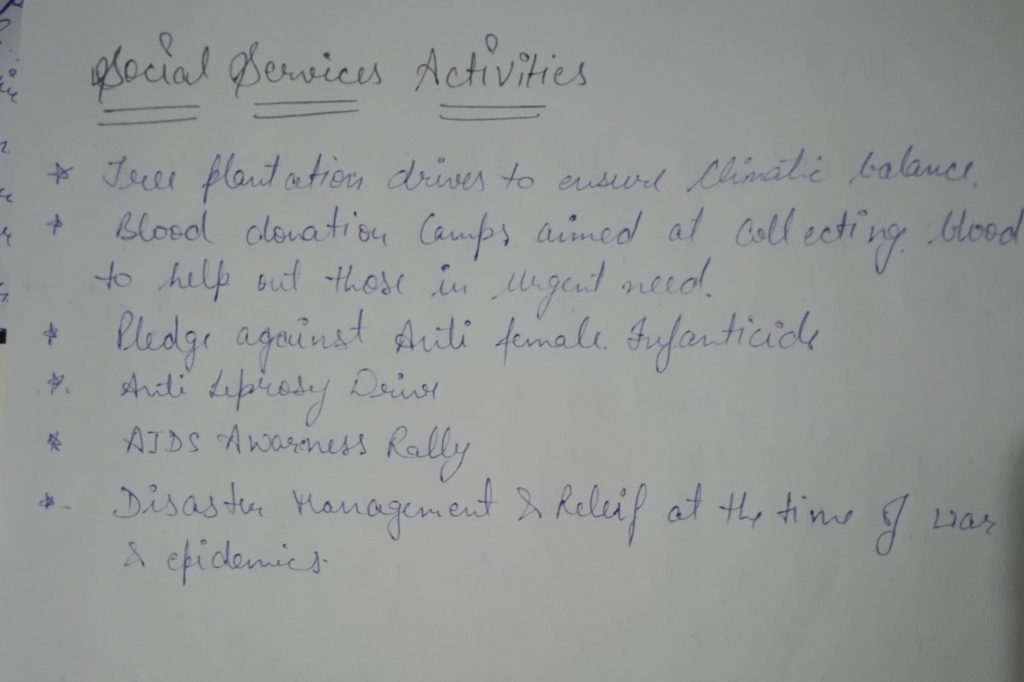 Social Services Activities
* Tree plantation drives to ensure Climatic balance.
* Blood donation Camps aimed at Collecting blood
to help out those in urgent need.
* Pledge against Anti female Infanticide
* Anti Leprosy Drive
* AIDS Awarness Rally
* Disaster Management & Releif at the time of war
& epidemics.